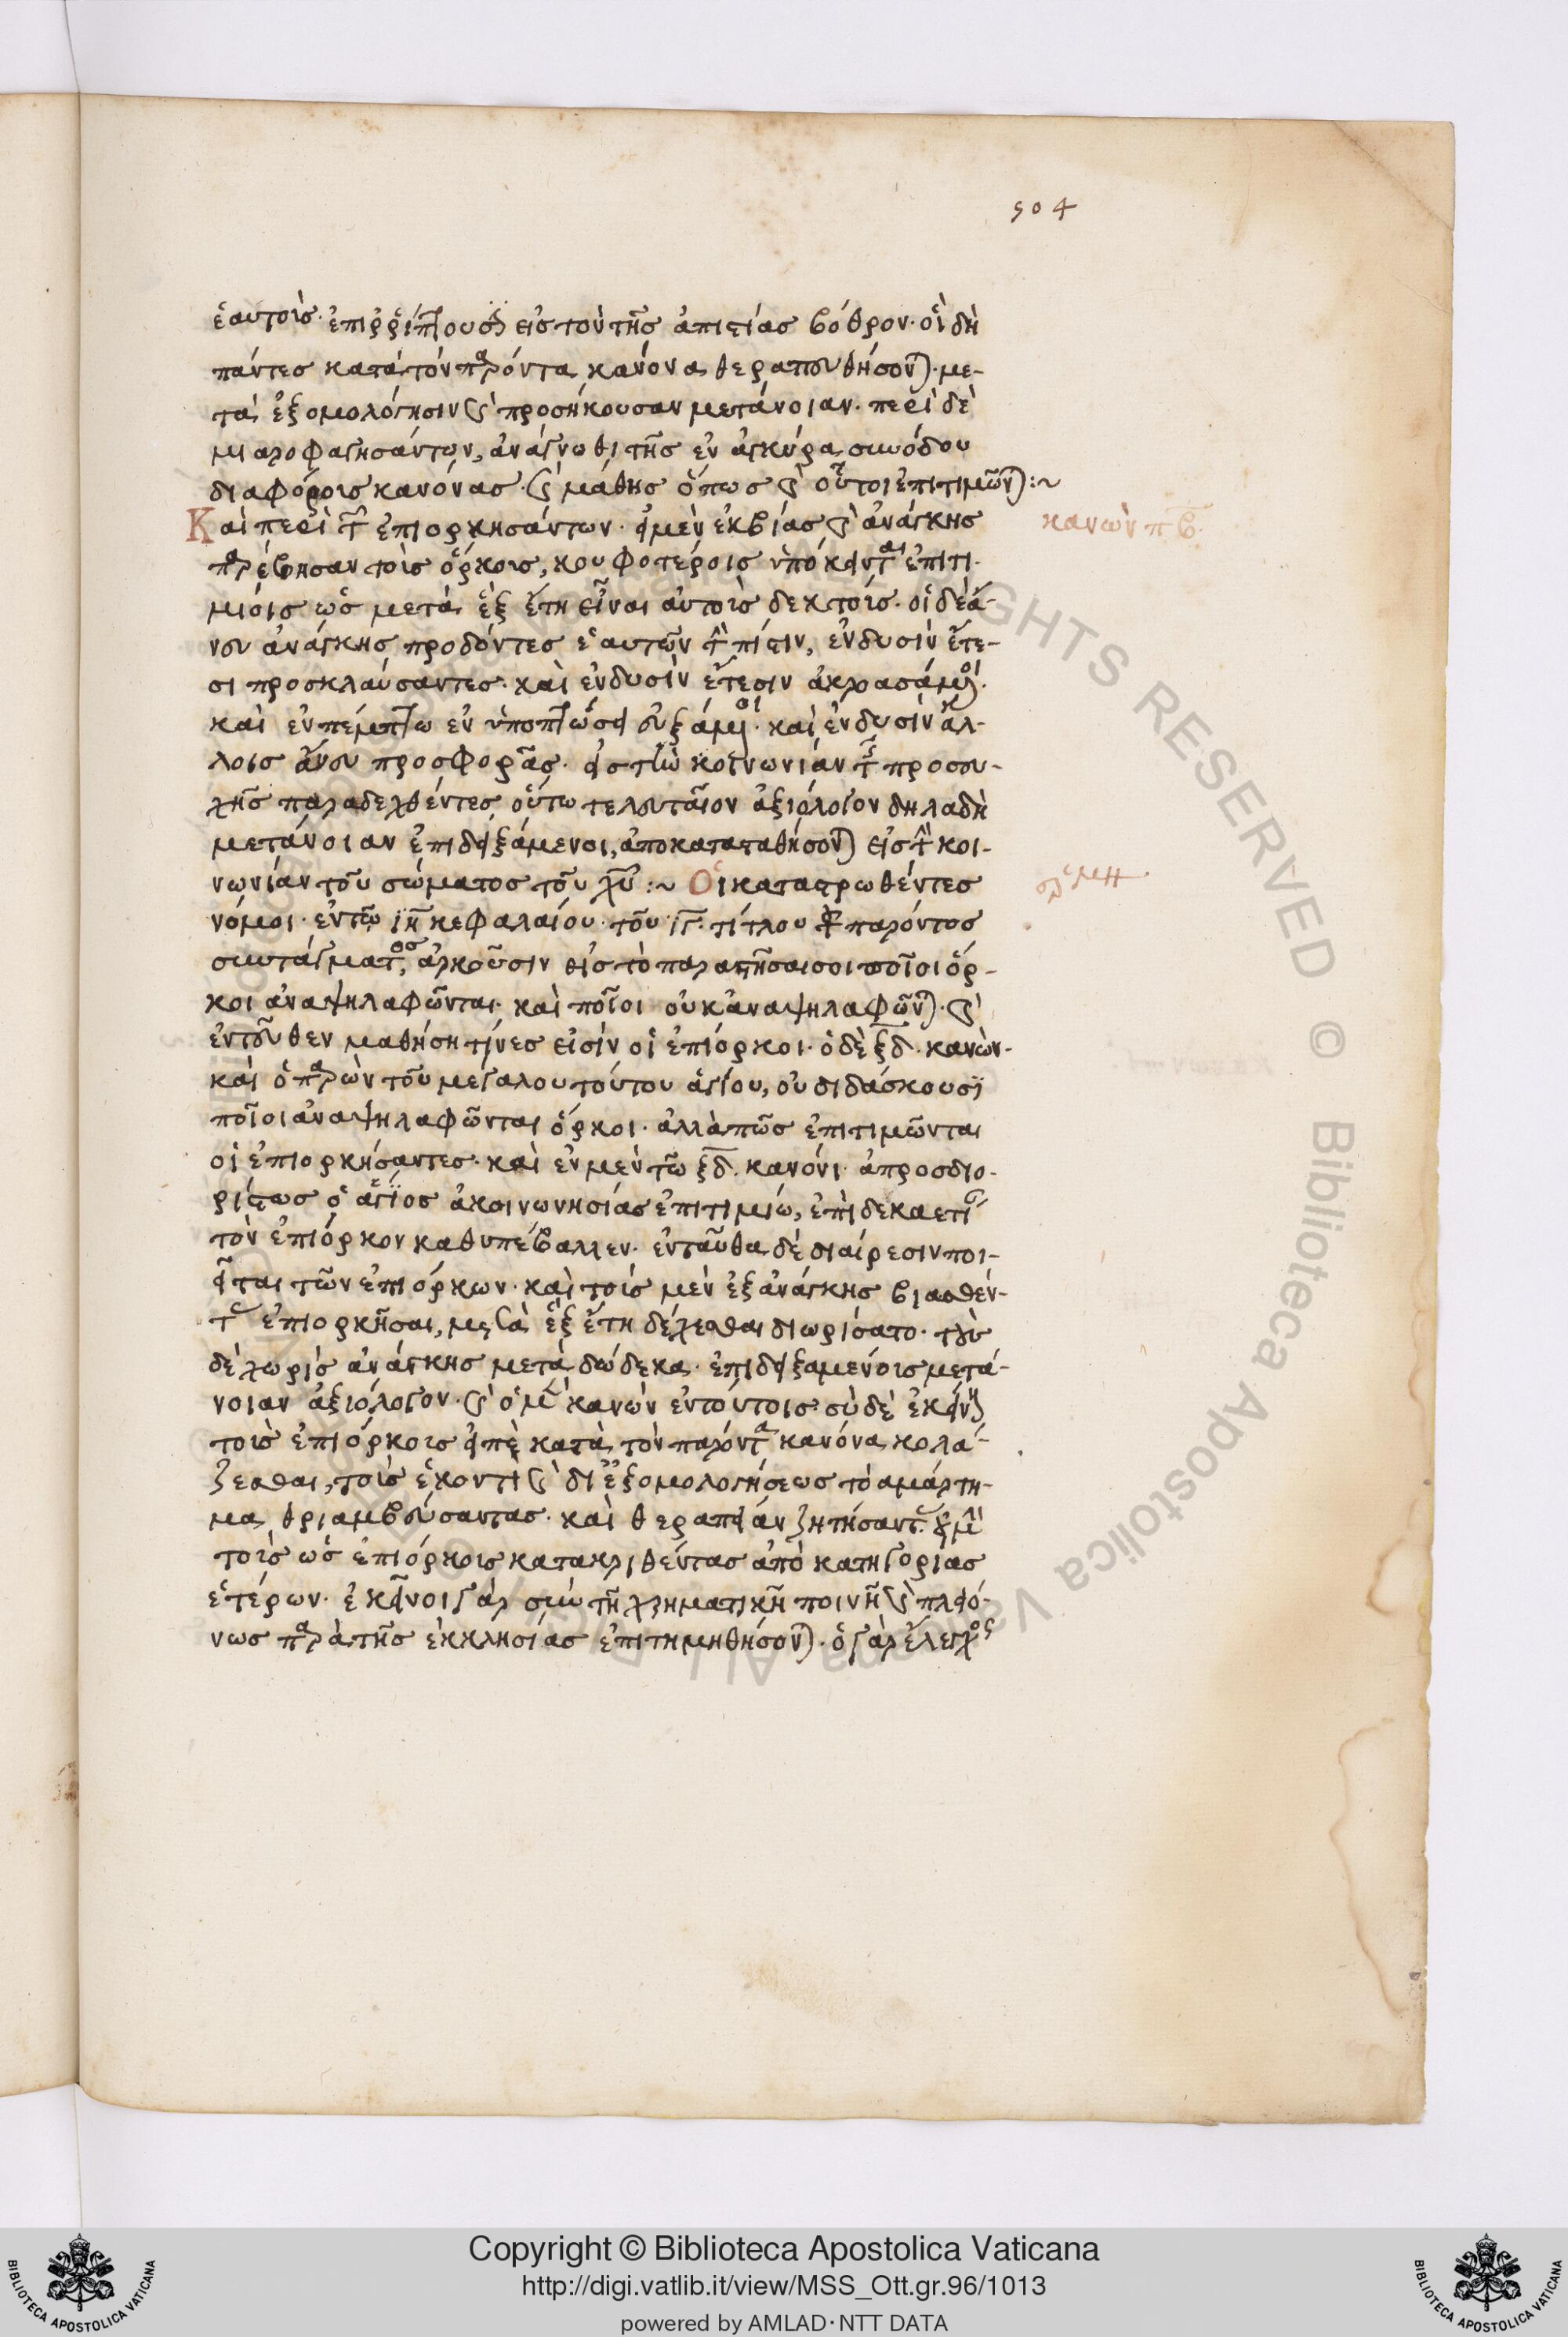 504
ἑαυτοὺς ἐπιρρίπτουσιν εἰς τὸν τῆς ἀπιστίας βόθρον. οἳ δὴ
πάντες κατὰ τὸν παρόντα κανόνα θεραπευθήσονται. με-
τὰ ἐξομολόγησιν καὶ προσήκουσαν μετάνοιαν. περὶ δὲ
μιαροφαγησάντων, ἀνάγνωθι τῆς ἐν ἀγκύρα συνόδου
διαφόρους κανόνας. καὶ μάθης ὅπως καὶ οὗτοι ἐπιτιμῶνται :~
Καὶ περὶ τῶν ἐπιορκησάντων. εἰ μὲν ἐκ βίας καὶ ἀνάγκης
κανὼν πβ.
παρέβησαν τοὺς ὅρκους, κουφοτέροις ὑπόκεινται ἐπιτι-
μίοις ὡς μετὰ ἓξ ἔτη εἶναι αὐτοὺς δεκτούς. οἱ δὲ ἄ-
νευ ἀνάγκης προδόντες ἑαυτῶν τὴν πίστιν, ἐν δυσὶν ἔτε-
σι προσκλαύσαντες. καὶ ἐν δυσὶν ἔτεσιν ἀκροασάμενοι.
καὶ ἐν πέμπτω ἐν ὑποπτώσει εὐξάμενοι. καὶ ἐν δυσὶν ἄλ-
λοις ἄνευ προσφορᾶς. εἰς τὴν κοινωνίαν τῆς προσευ-
χῆς παραδεχθέντες, οὕτω τελευταῖον ἀξιόλογον δηλαδὴ
μετάνοιαν ἐπιδειξάμενοι, ἀποκατασταθήσονται εἰς τὴν κοι-
νωνίαν τοῦ σώματος τοῦ χυ :~ Οἱ καταστρωθέντες
νόμοι ἐν τῶ ιη κεφαλαίου τοῦ ιγ. τίτλου τοῦ παρόντος
συντάγματος, ἀρκοῦσιν εἰς τὸ παραστῆσαι σοι ποῖοι ὅρ-
κοι ἀναψηλαφῶνται. καὶ ποῖοι οὐκ ἀναψηλαφῶνται. καὶ
ἐντεῦθεν μαθήση τίνες εἰσὶν οἱ ἐπίορκοι. ὁ δὲ ξδ. κανὼν.
καὶ ὁ παρὼν τοῦ μεγάλου τούτου ἁγίου, οὐ διδάσκουσι
ποῖοι ἀναψηλαφῶνται ὅρκοι. ἀλλὰ πῶς ἐπιτιμῶνται
οἱ ἐπιορκήσαντες. καὶ ἐν μὲν τῶ ξδ. κανόνι. ἀπροσδιο-
ρίστως ὁ ἅγιος ἀκοινωνησίας ἐπιτιμίω, ἐπὶ δεκαετίαν
τὸν ἐπίορκον καθυπέβαλλεν. ἐνταῦθα δὲ διαίρεσιν ποι-
εῖται τῶν ἐπιόρκων. καὶ τοὺς μὲν ἐξ ἀνάγκης βιασθέν-
τας ἐπιορκῆσαι, μετὰ ἓξ ἔτη δέχεσθαι διωρίσατο. τοὺς
δὲ χωρὶς ἀνάγκης μετὰ δώδεκα. ἐπιδειξαμένους μετά-
νοιαν ἀξιόλογον. καὶ ὁ μὲν κανὼν ἐν τούτοις. σὺ δὲ ἐκείνους
τοὺς ἐπιόρκους εἰπὲ κατὰ τὸν παρόντα κανόνα κολά-
ζεσθαι, τοὺς ἑκοντὶ καὶ δι' ἐξομολογήσεως τὸ ἁμάρτη-
μα θριαμβεύσαντας. καὶ θεραπείαν ζητήσαντας. οὐ μὴν
τοὺς ὡς ἐπιόρκους κατακριθέντας ἀπὸ κατηγορίας
ἑτέρων. ἐκεῖνοι γὰρ σὺν τῆ χρηματικῆ ποινῆ καὶ πλειό-
νως παρὰ τῆς ἐκκλησίας ἐπιτιμηθήσονται. ὁ γὰρ ἔλεγχος
Copyright © Biblioteca Apostolica Vaticana
http://digi.vatlib.it/view/MSS_Ott.gr.96/1013
powered by AMLAD·NTT DATA